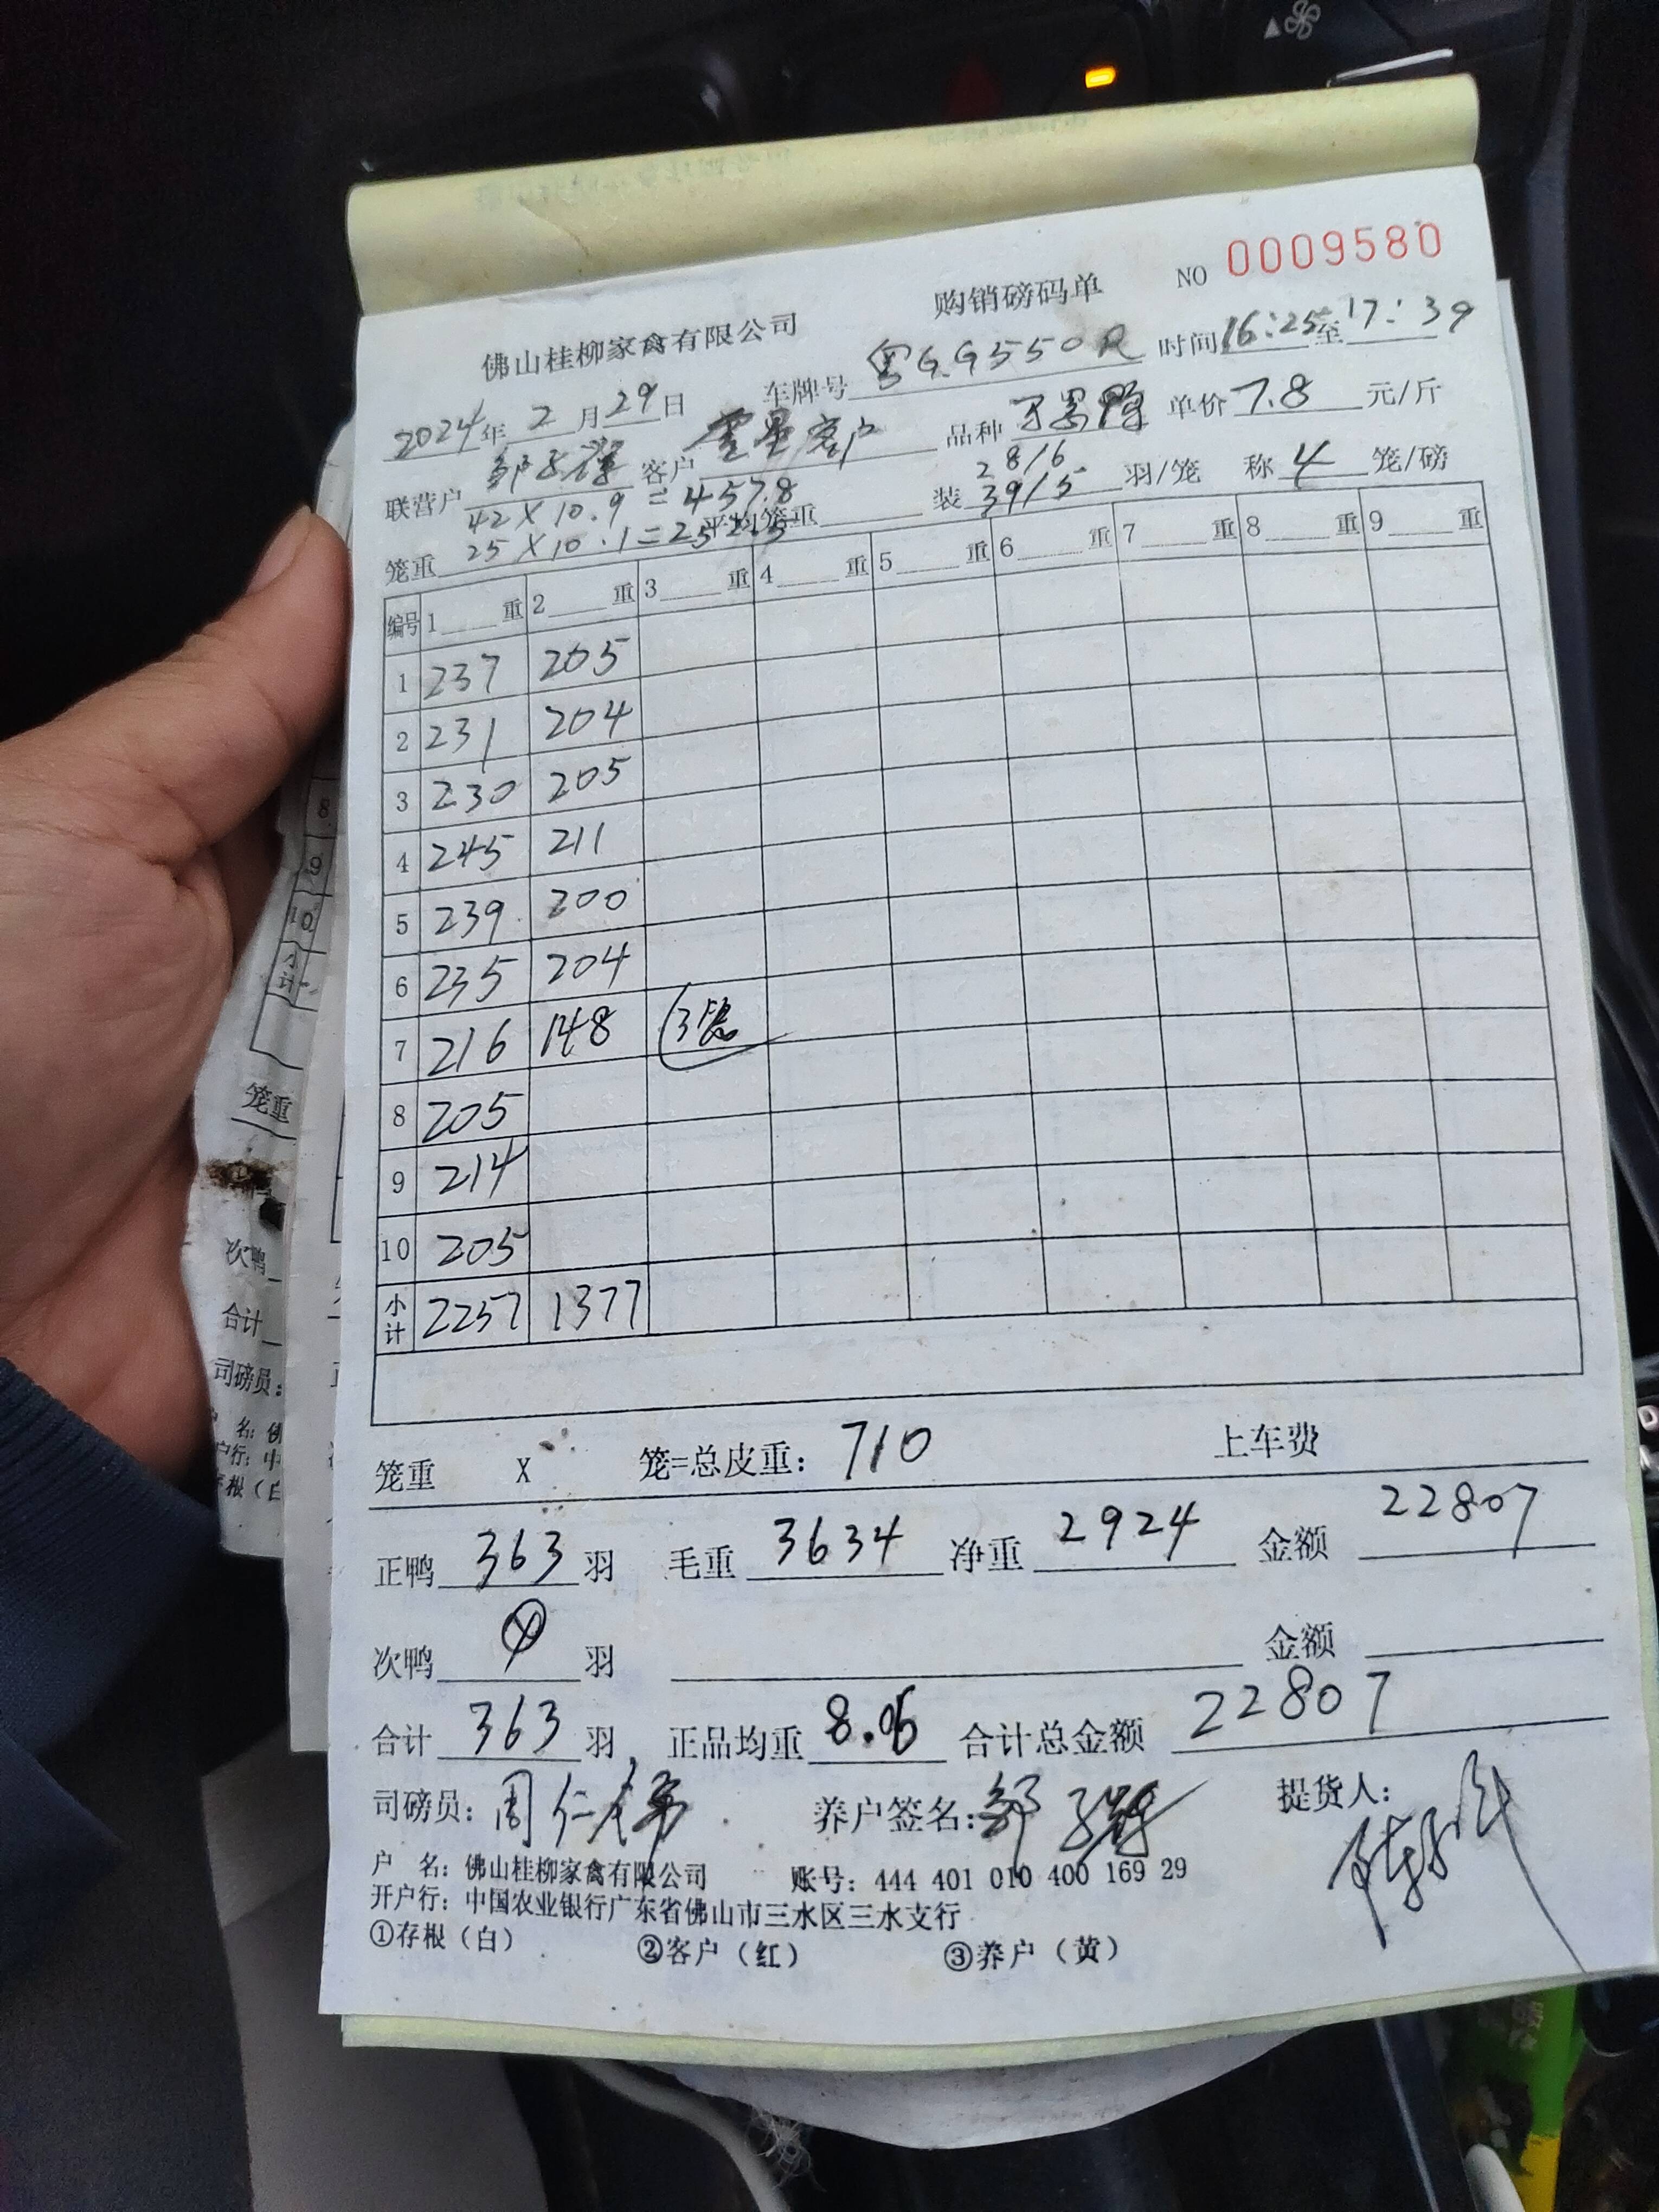 NO 0009580
佛山桂柳家禽有限公司 购销磅码单
2024年 2 月 29 日 车牌号 粤G.G550R 时间 16:25 至 17:39
联营户 邹 客户 零星客户 品种 单价 7.8 元/斤
42 X 10.9 = 457.8 装 28/6 39/5 羽/笼 称 4 笼/磅
笼重 25 X 10.1 = 252.5 平均笼重
编号 1 重 2 重 3 重 4 重 5 重 6 重 7 重 8 重 9 重
1 237 205
2 231 204
3 230 205
4 245 211
5 239 200
6 235 204
7 216 148 (3笼
8 205
9 214
10 205
小计 2257 1377
笼重 X 笼=总皮重: 710 上车费
正鸭 363 羽 毛重 3634 净重 2924 金额 22807
次鸭 羽 金额
合计 363 羽, 正品均重 8.05 合计总金额 22807
司磅员: 周仁 养户签名: 邹 提货人:
户 名: 佛山桂柳家禽有限公司 账号: 444 401 010 400 169 29
开户行: 中国农业银行广东省佛山市三水区三水支行
①存根(白) ②客户(红) ③养户(黄)
8
9
10
小计
笼重
次鸭
合计
司磅员: